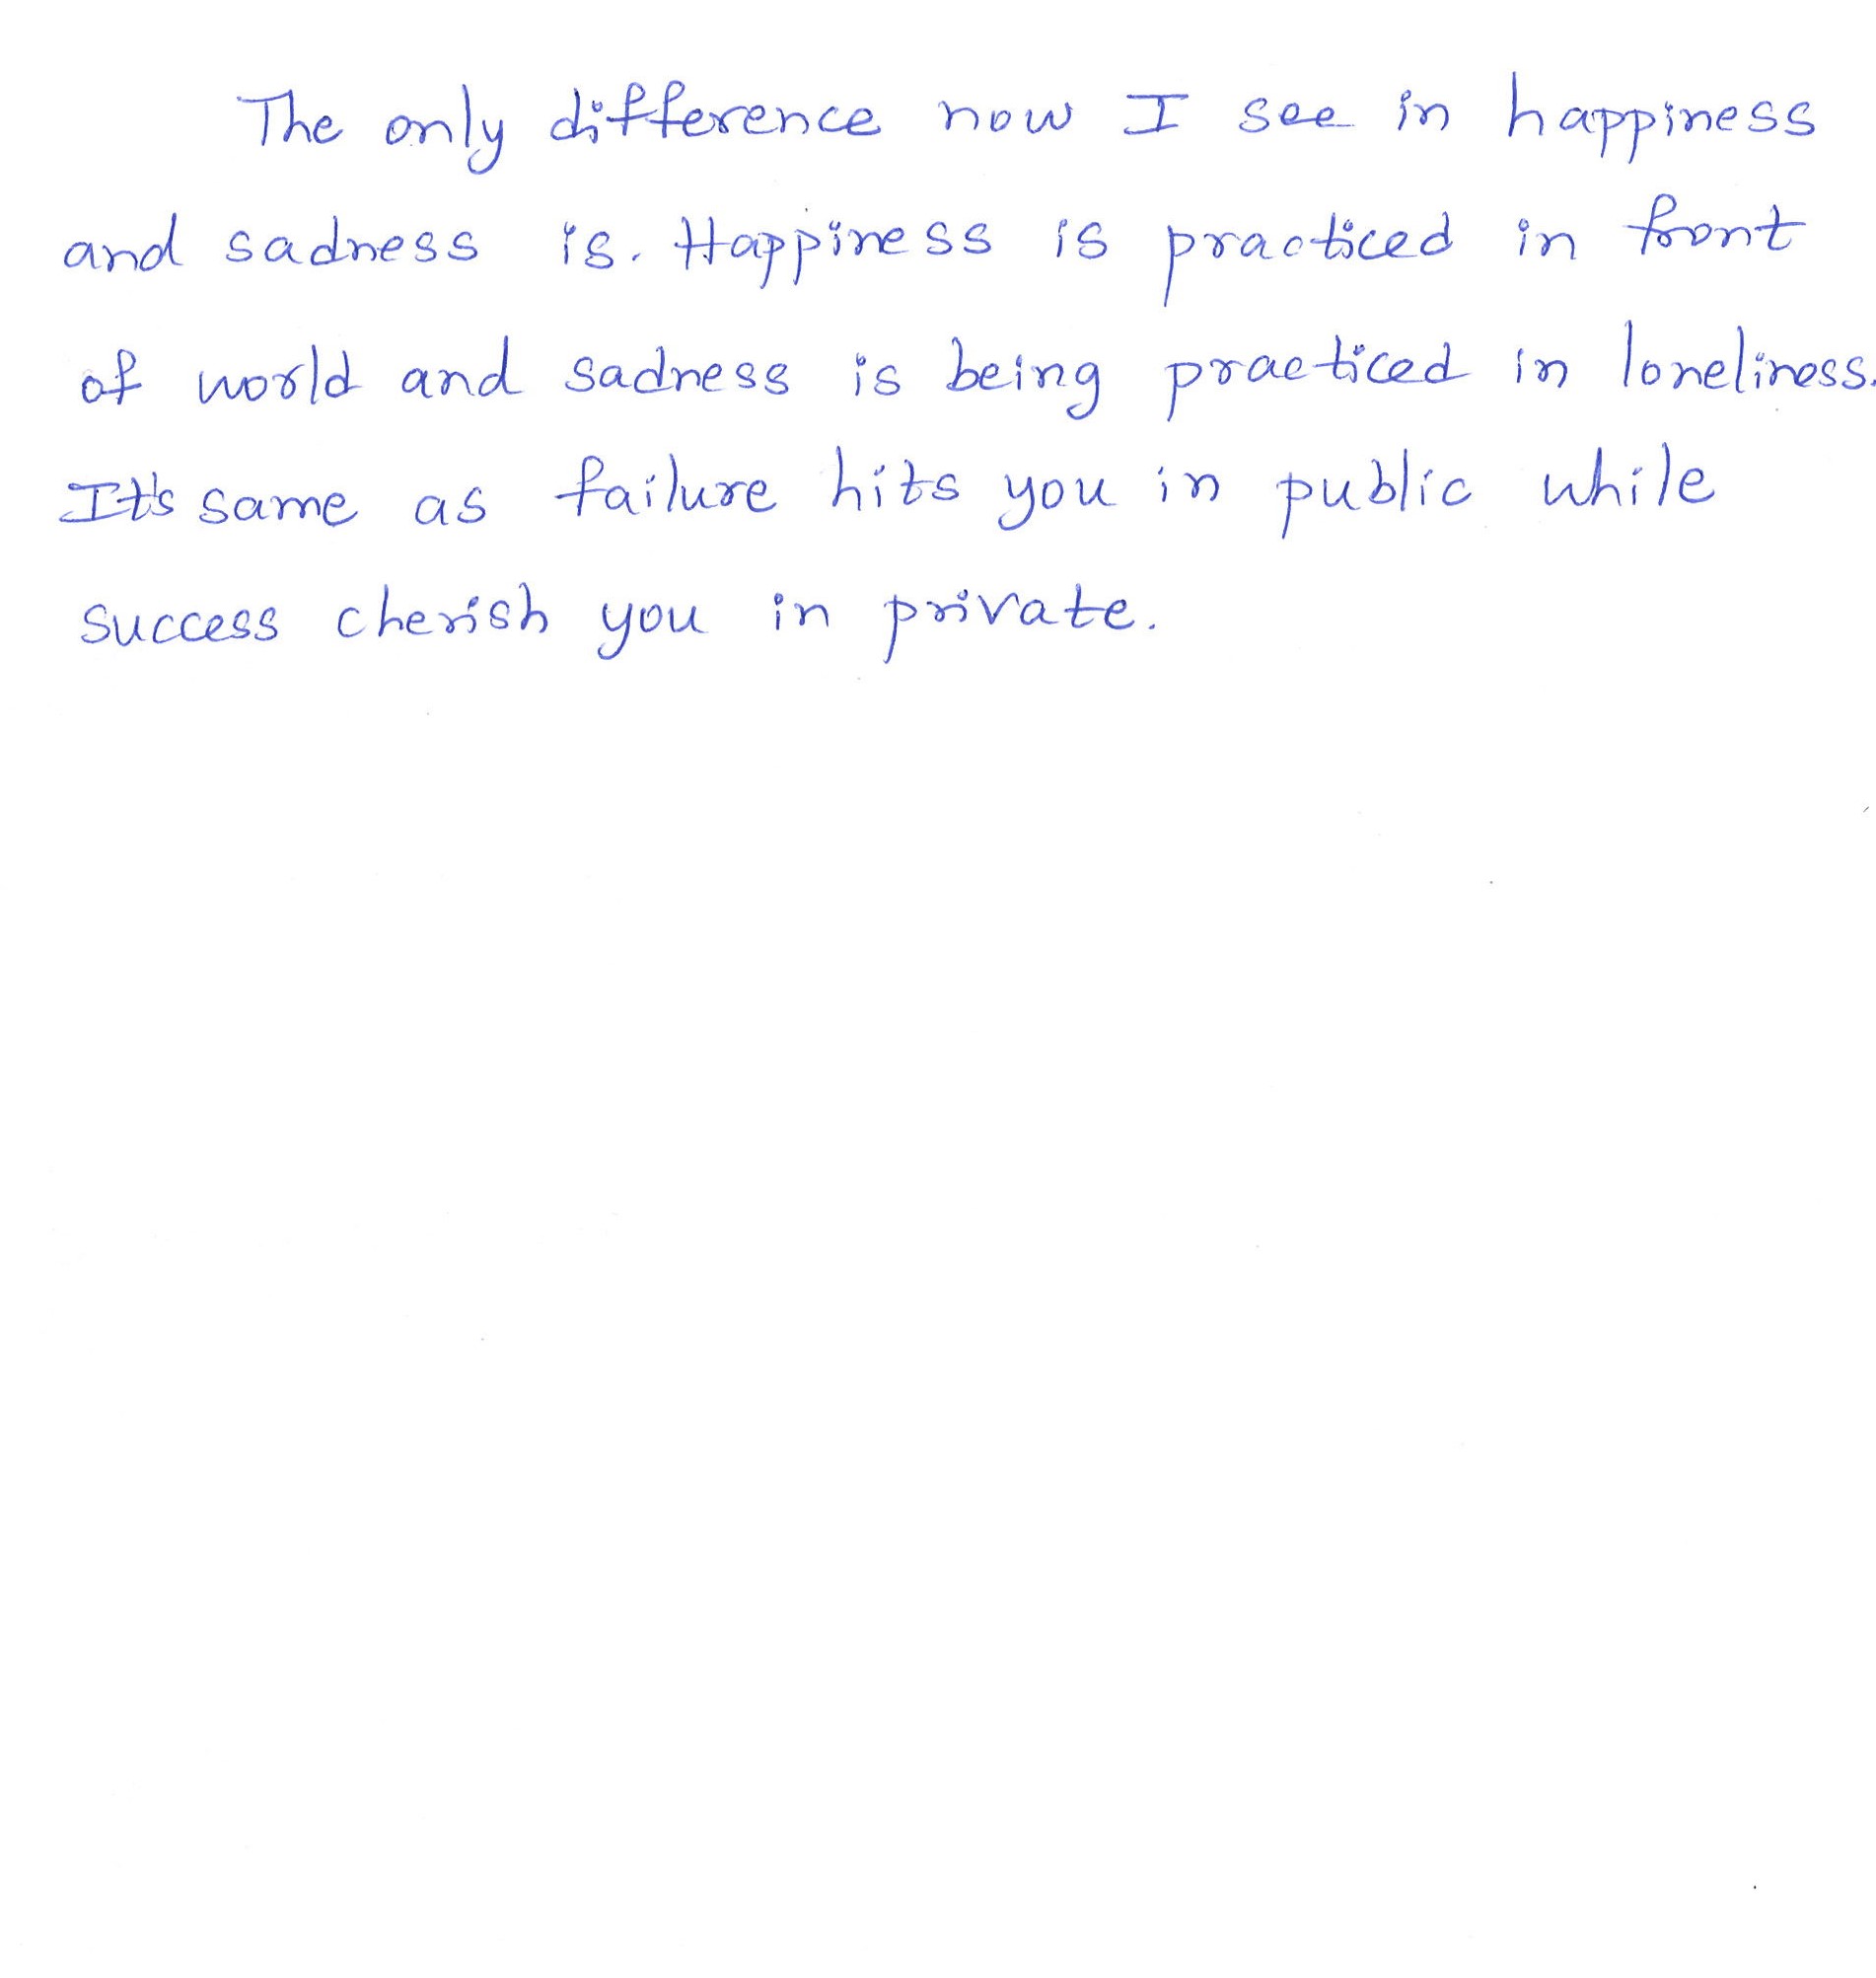 The only difference now I see in happiness
and sadness is. Happiness is practiced in front
of world and sadness is being practiced in loneliness.
It's same as failure hits you in public while
success cherish you in private.